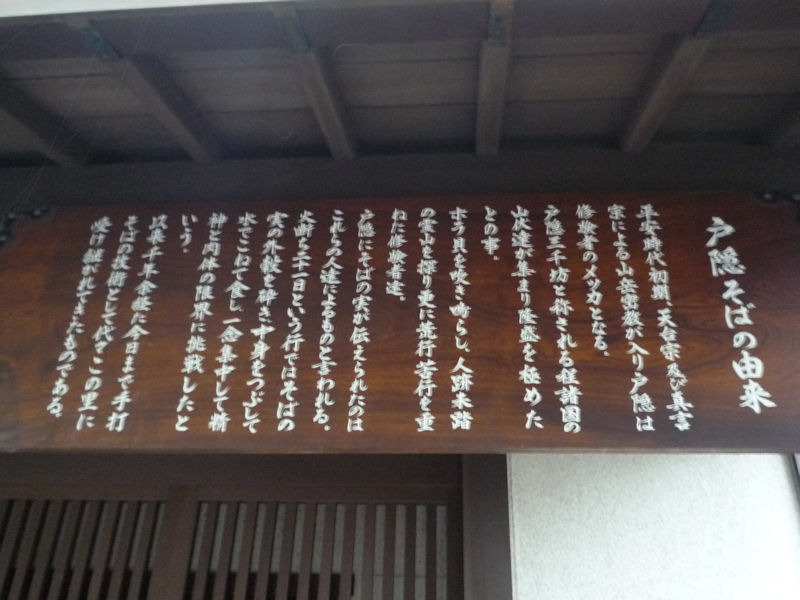 戸隠そばの由来
平安時代初期、天台宗及び真言
宗による山岳密教が入り戸隠は
修験者のメッカとなる。
戸隠三千坊と称される程諸国の
山伏達が集まり隆盛を極めた
との事。
ホラ貝を吹き鳴らし、人跡未踏
の霊山を探り更に荒行苦行を重
ねた修験者達。
戸隠にそばの実が伝えられたのは
これらの人達によるものと言われる。
火断ち二十一日という行ではそばの
実の外殻を砕き中身をつぶして
水でこねて食し一念集中して精
神と肉体の限界に挑戦したと
いう。
以来千年余経に今日まで手打
そばの技術として代々この里に
受け継がれてきたものである。